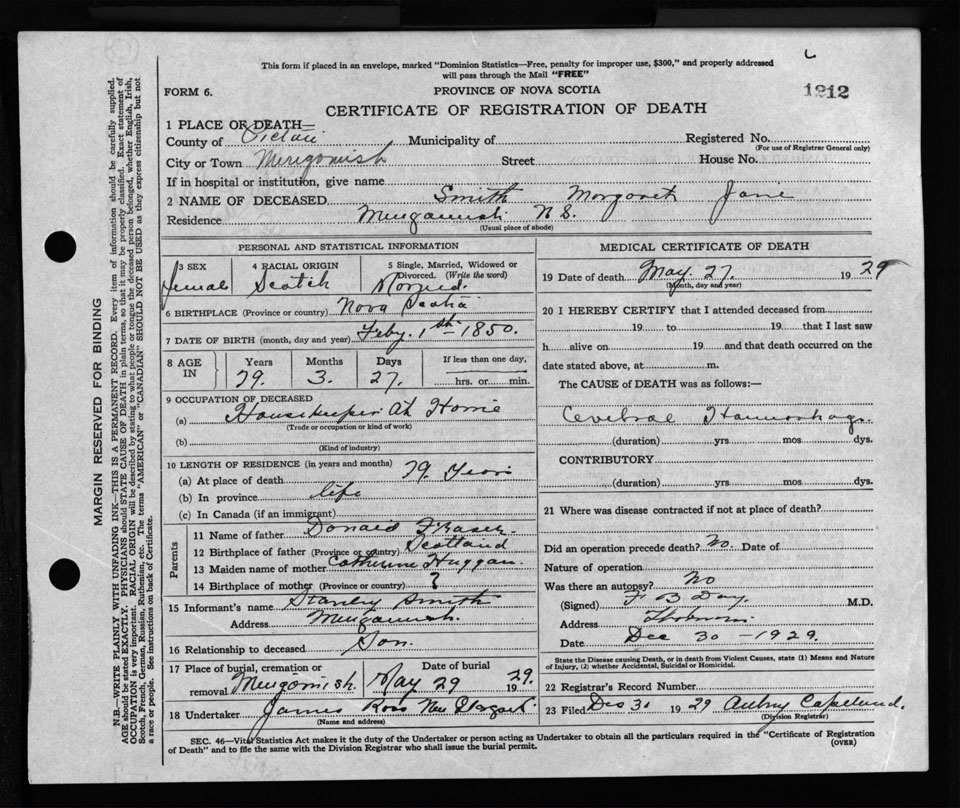 This form if placed in an envelope, marked "Dominion Statistics—Free, penalty for improper use, $300," and properly addressed
will pass through the Mail "FREE"
FORM 6.
PROVINCE OF NOVA SCOTIA
1212
CERTIFICATE OF REGISTRATION OF DEATH
1 PLACE OF DEATH—
County of Pictou Municipality of Registered No.
(For use of Registrar General only)
City or Town Merigomish Street House No.
If in hospital or institution, give name
2 NAME OF DECEASED Smith Margaret Jane
Residence Merigomish N S.
(Usual place of abode)
PERSONAL AND STATISTICAL INFORMATION
3 SEX 4 RACIAL ORIGIN 5 Single, Married, Widowed or
Divorced. (Write the word)
Female Scotch Married.
6 BIRTHPLACE (Province or country) Nova Scotia
7 DATE OF BIRTH (month, day and year) Feby. 1st 1850.
8 AGE IN Years Months Days If less than one day,
79. 3. 27. hrs. or min.
9 OCCUPATION OF DECEASED
(a) Housekeeper At Home
(Trade or occupation or kind of work)
(b)
(Kind of industry)
10 LENGTH OF RESIDENCE (in years and months)
(a) At place of death 79 Years
(b) In province life
(c) In Canada (if an immigrant)
Parents
11 Name of father Donald Fraser.
12 Birthplace of father (Province or country) Scotland
13 Maiden name of mother Catherine Huggan.
14 Birthplace of mother (Province or country) ?
15 Informant's name Stanley Smith
Address Merigomish.
16 Relationship to deceased Son.
17 Place of burial, cremation or
removal Merigomish.
Date of burial
May 29 1929.
18 Undertaker James Ross New Glasgow
(Name and address)
MEDICAL CERTIFICATE OF DEATH
19 Date of death May 27. 1929
(Month, day and year)
20 I HEREBY CERTIFY that I attended deceased from
19 to 19 that I last saw
h alive on 19 and that death occurred on the
date stated above, at m.
The CAUSE of DEATH was as follows:—
Cerebral Haemorrhage.
(duration) yrs mos dys.
CONTRIBUTORY
(duration) yrs mos dys.
21 Where was disease contracted if not at place of death?
Did an operation precede death? No Date of
Nature of operation
Was there an autopsy? No
(Signed) F B Day M.D.
Address Thorburn.
Date Dec 30 - 1929.
State the Disease causing Death, or in death from Violent Causes, state (1) Means and Nature
of Injury, (2) whether Accidental, Suicidal or Homicidal.
22 Registrar's Record Number
23 Filed Dec 31 1929 Aubrey Copeland.
(Division Registrar)
SEC. 46—Vital Statistics Act makes it the duty of the Undertaker or person acting as Undertaker to obtain all the particulars required in the "Certificate of Registration
of Death" and to file the same with the Division Registrar who shall issue the burial permit. (OVER)
MARGIN RESERVED FOR BINDING
N.B.—WRITE PLAINLY WITH UNFADING INK—THIS IS A PERMANENT RECORD. Every item of information should be carefully supplied.
AGE should be stated EXACTLY. PHYSICIANS should STATE CAUSE OF DEATH in plain terms, so that it may be properly classified. Exact statement of
OCCUPATION is very important. RACIAL ORIGIN will be described by stating to what people or tongue the deceased person belonged, whether English, Irish,
Scotch, French, German, Russian, Ruthenian, etc. The terms "AMERICAN" or "CANADIAN" SHOULD NOT BE USED as they express citizenship but not
a race or people. See instructions on back of Certificate.